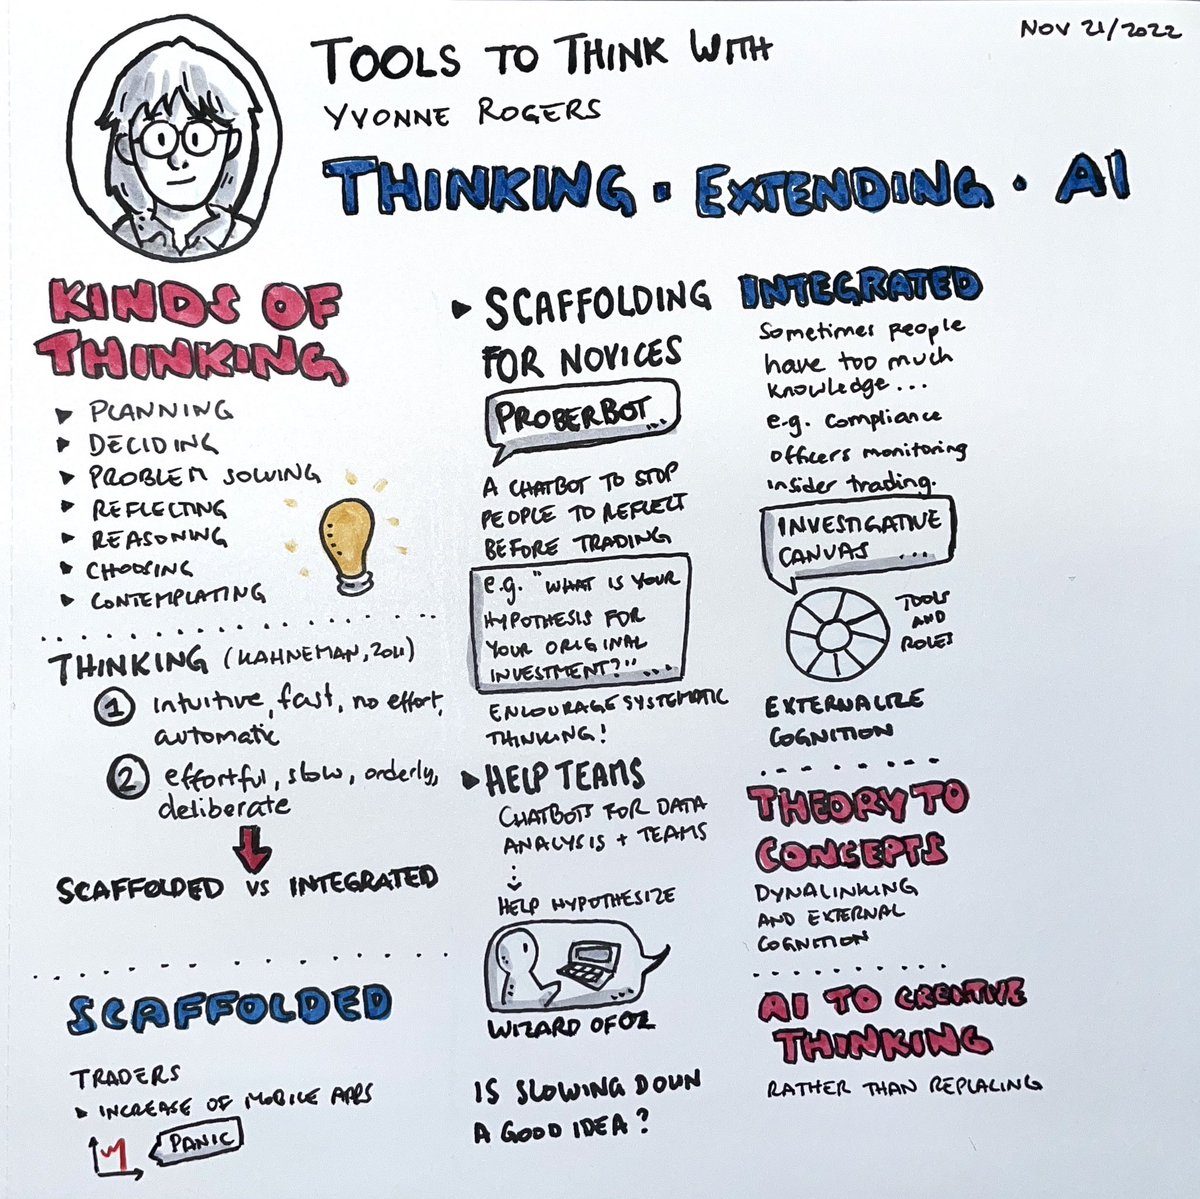 NOV 21/2022
TOOLS TO THINK WITH
YVONNE ROGERS
THINKING · EXTENDING · AI
KINDS OF
THINKING
▸ PLANNING
▸ DECIDING
▸ PROBLEM SOLVING
▸ REFLECTING
▸ REASONING
▸ CHOOSING
▸ CONTEMPLATING
THINKING (KAHNEMAN, 2011)
1 intuitive, fast, no effort,
automatic
2 effortful, slow, orderly,
deliberate
SCAFFOLDED VS INTEGRATED
SCAFFOLDED
TRADERS
▸ INCREASE OF MOBILE APPS
PANIC
▸ SCAFFOLDING
FOR NOVICES
PROBERBOT...
A CHATBOT TO STOP
PEOPLE TO REFLECT
BEFORE TRADING
e.g. "WHAT IS YOUR
HYPOTHESIS FOR
YOUR ORIGINAL
INVESTMENT?"...
ENCOURAGE SYSTEMATIC
THINKING!
▸ HELP TEAMS
CHATBOTS FOR DATA
ANALYSIS + TEAMS
HELP HYPOTHESIZE
WIZARD OF OZ
IS SLOWING DOWN
A GOOD IDEA?
INTEGRATED
Sometimes people
have too much
knowledge...
e.g. compliance
officers monitoring
insider trading.
INVESTIGATIVE
CANVAS ...
TOOLS
AND
ROLES
EXTERNALIZE
COGNITION
THEORY TO
CONCEPTS
DYNALINKING
AND EXTERNAL
COGNITION
AI TO CREATIVE
THINKING
RATHER THAN REPLACING